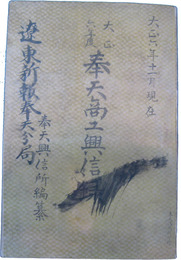 大正六年十二月現在
大正六年度
奉天商工興信
奉天興信所編纂
遼東新報奉天支局